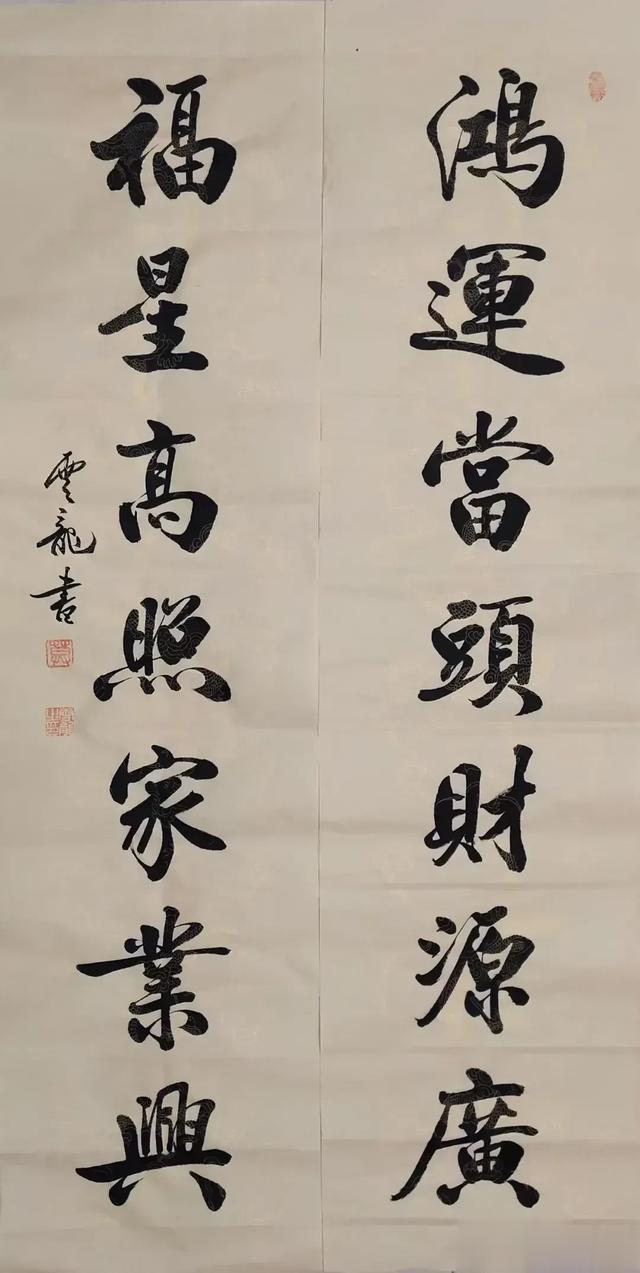 鴻運當頭財源廣
福星高照家業興
雲龍書